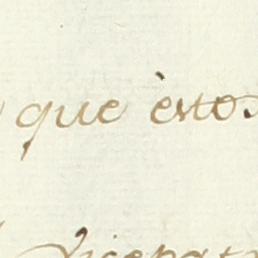 que èsto.